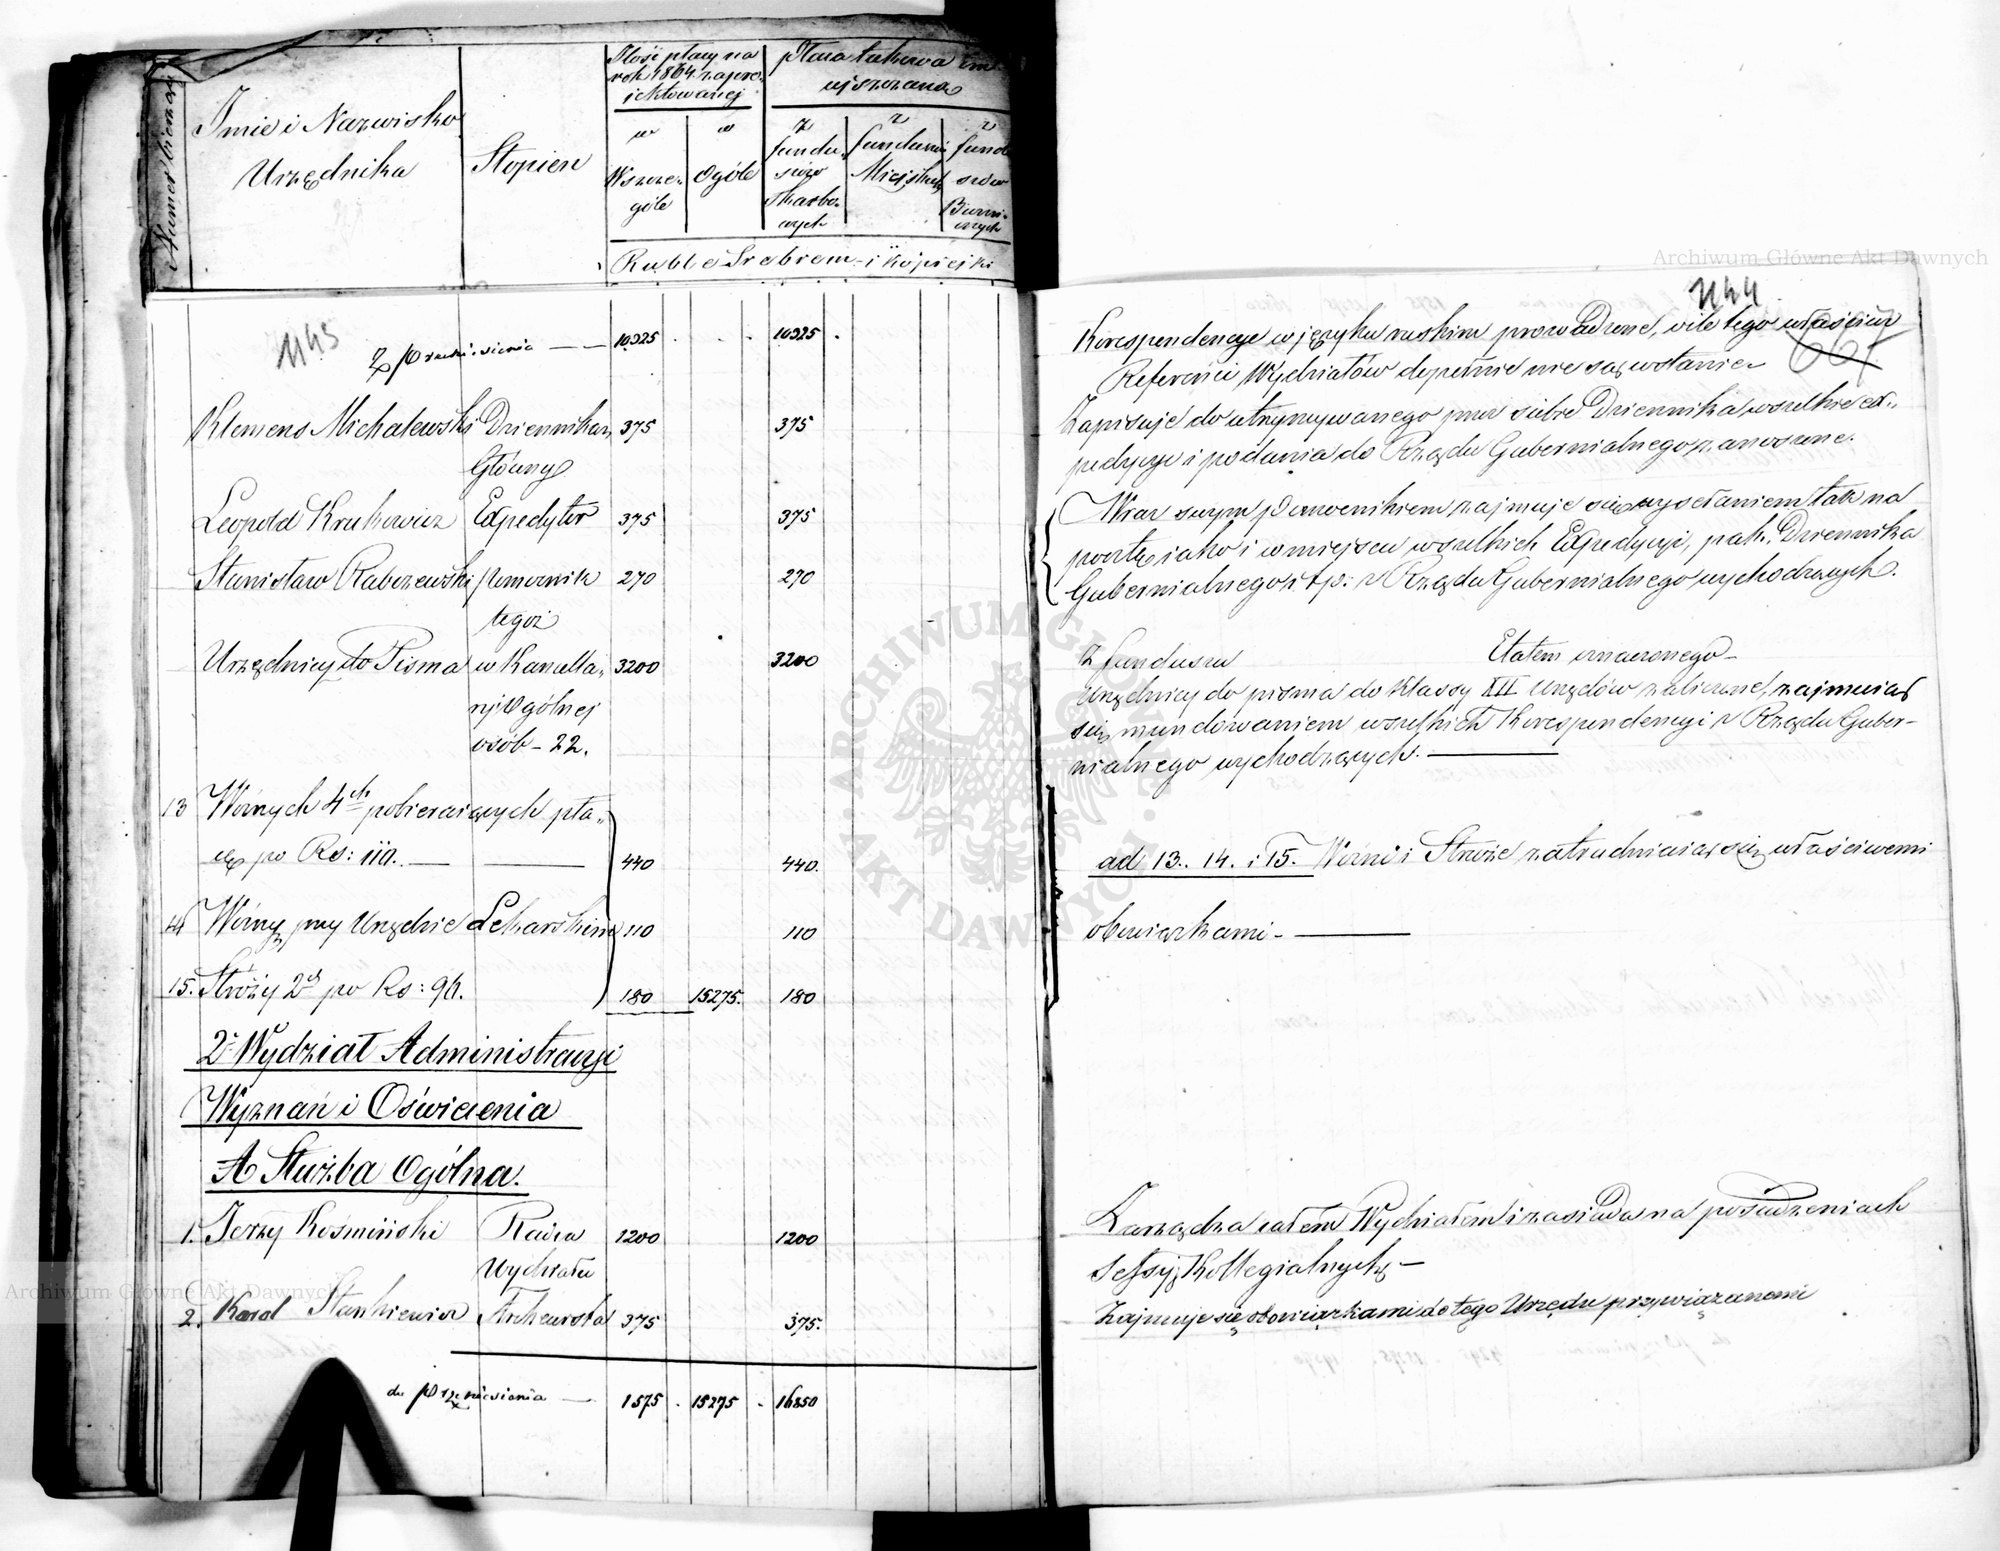 Numer bieżący
Imie i Nazwisko
Urzędnika
Stopień
Ilość płacy na
rok 1864 zapro-
jektowanej
w
Wszcze-
góle
w
Ogóle
Płaca takowa
z
fundu-
szów
Skarbo-
wych
z
funduszów
Miejskich
z
fundu
szów
Ruble Srebrem i kopiejki
1143
Z Przeniesienia — — 10325 . . . 10325 .
Klemens Michalewski Dziennikarz 375 375
Główny
Leopold Krukowicz Expedytor 375 375
Stanisław Rabczewski Pomocnik 270 270
tegoż
Urzędnicy do Pisma w Kancella- 3200 3200
ryi Ogólnej
osób - 22.
13 Woźnych 4ch pobierających pła-
cę po Rs: 110. — — 440 440.
14 Woźny przy Urzędzie Lekarskim 110 110
15. Stróży 2ch po Rs: 90. 180 15275. 180
2. Wydział Administracyi
Wyznań i Oświecenia
A Służba Ogólna.
1. Jerzy Kośmiński Radca 1200 1200
Wydziału
2. Karol Stankiewicz Archiwista 375 375.
do Przeniesienia — 1575 . 15275 - 16850
1144
667
Korespondencye w języku ruskim prowadzone, o ile tego właściwi
Referenci Wydziałów dopełnić nie są w stanie
Zapisuje do utrzymywanego przez siebie Dziennika wszelkie ex-
pedycye i podania do Rządu Gubernialnego zanoszone.
Wraz swym Pomocnikiem zajmuje się wysełaniem tak na
pocztę jako i w miejscu wszelkich Expedycyi, pak. Dziennika
Gubernialnego i t.p. z Rządu Gubernialnego wychodzących.
Z funduszu Etatem oznaczonego —
Urzędnicy do pisma do Klassy XII Urzędów zaliczone, zajmują
się mundowaniem wszelkich Korespondencyi z Rządu Guber-
nialnego wychodzących. —
ad 13. 14. i 15. Woźni i Stróże zatrudniają się właściwemi
obowiązkami - —
Zarządza całem Wydziałem i zasiada na posiedzeniach
Sessyi Kollegialnych —
Zajmuje się obowiązkami do tego Urzędu przywiązanemi
Archiwum Główne Akt Dawnych
Archiwum Główne Akt Dawnych
ARCHIWUM GŁÓWNE AKT DAWNYCH